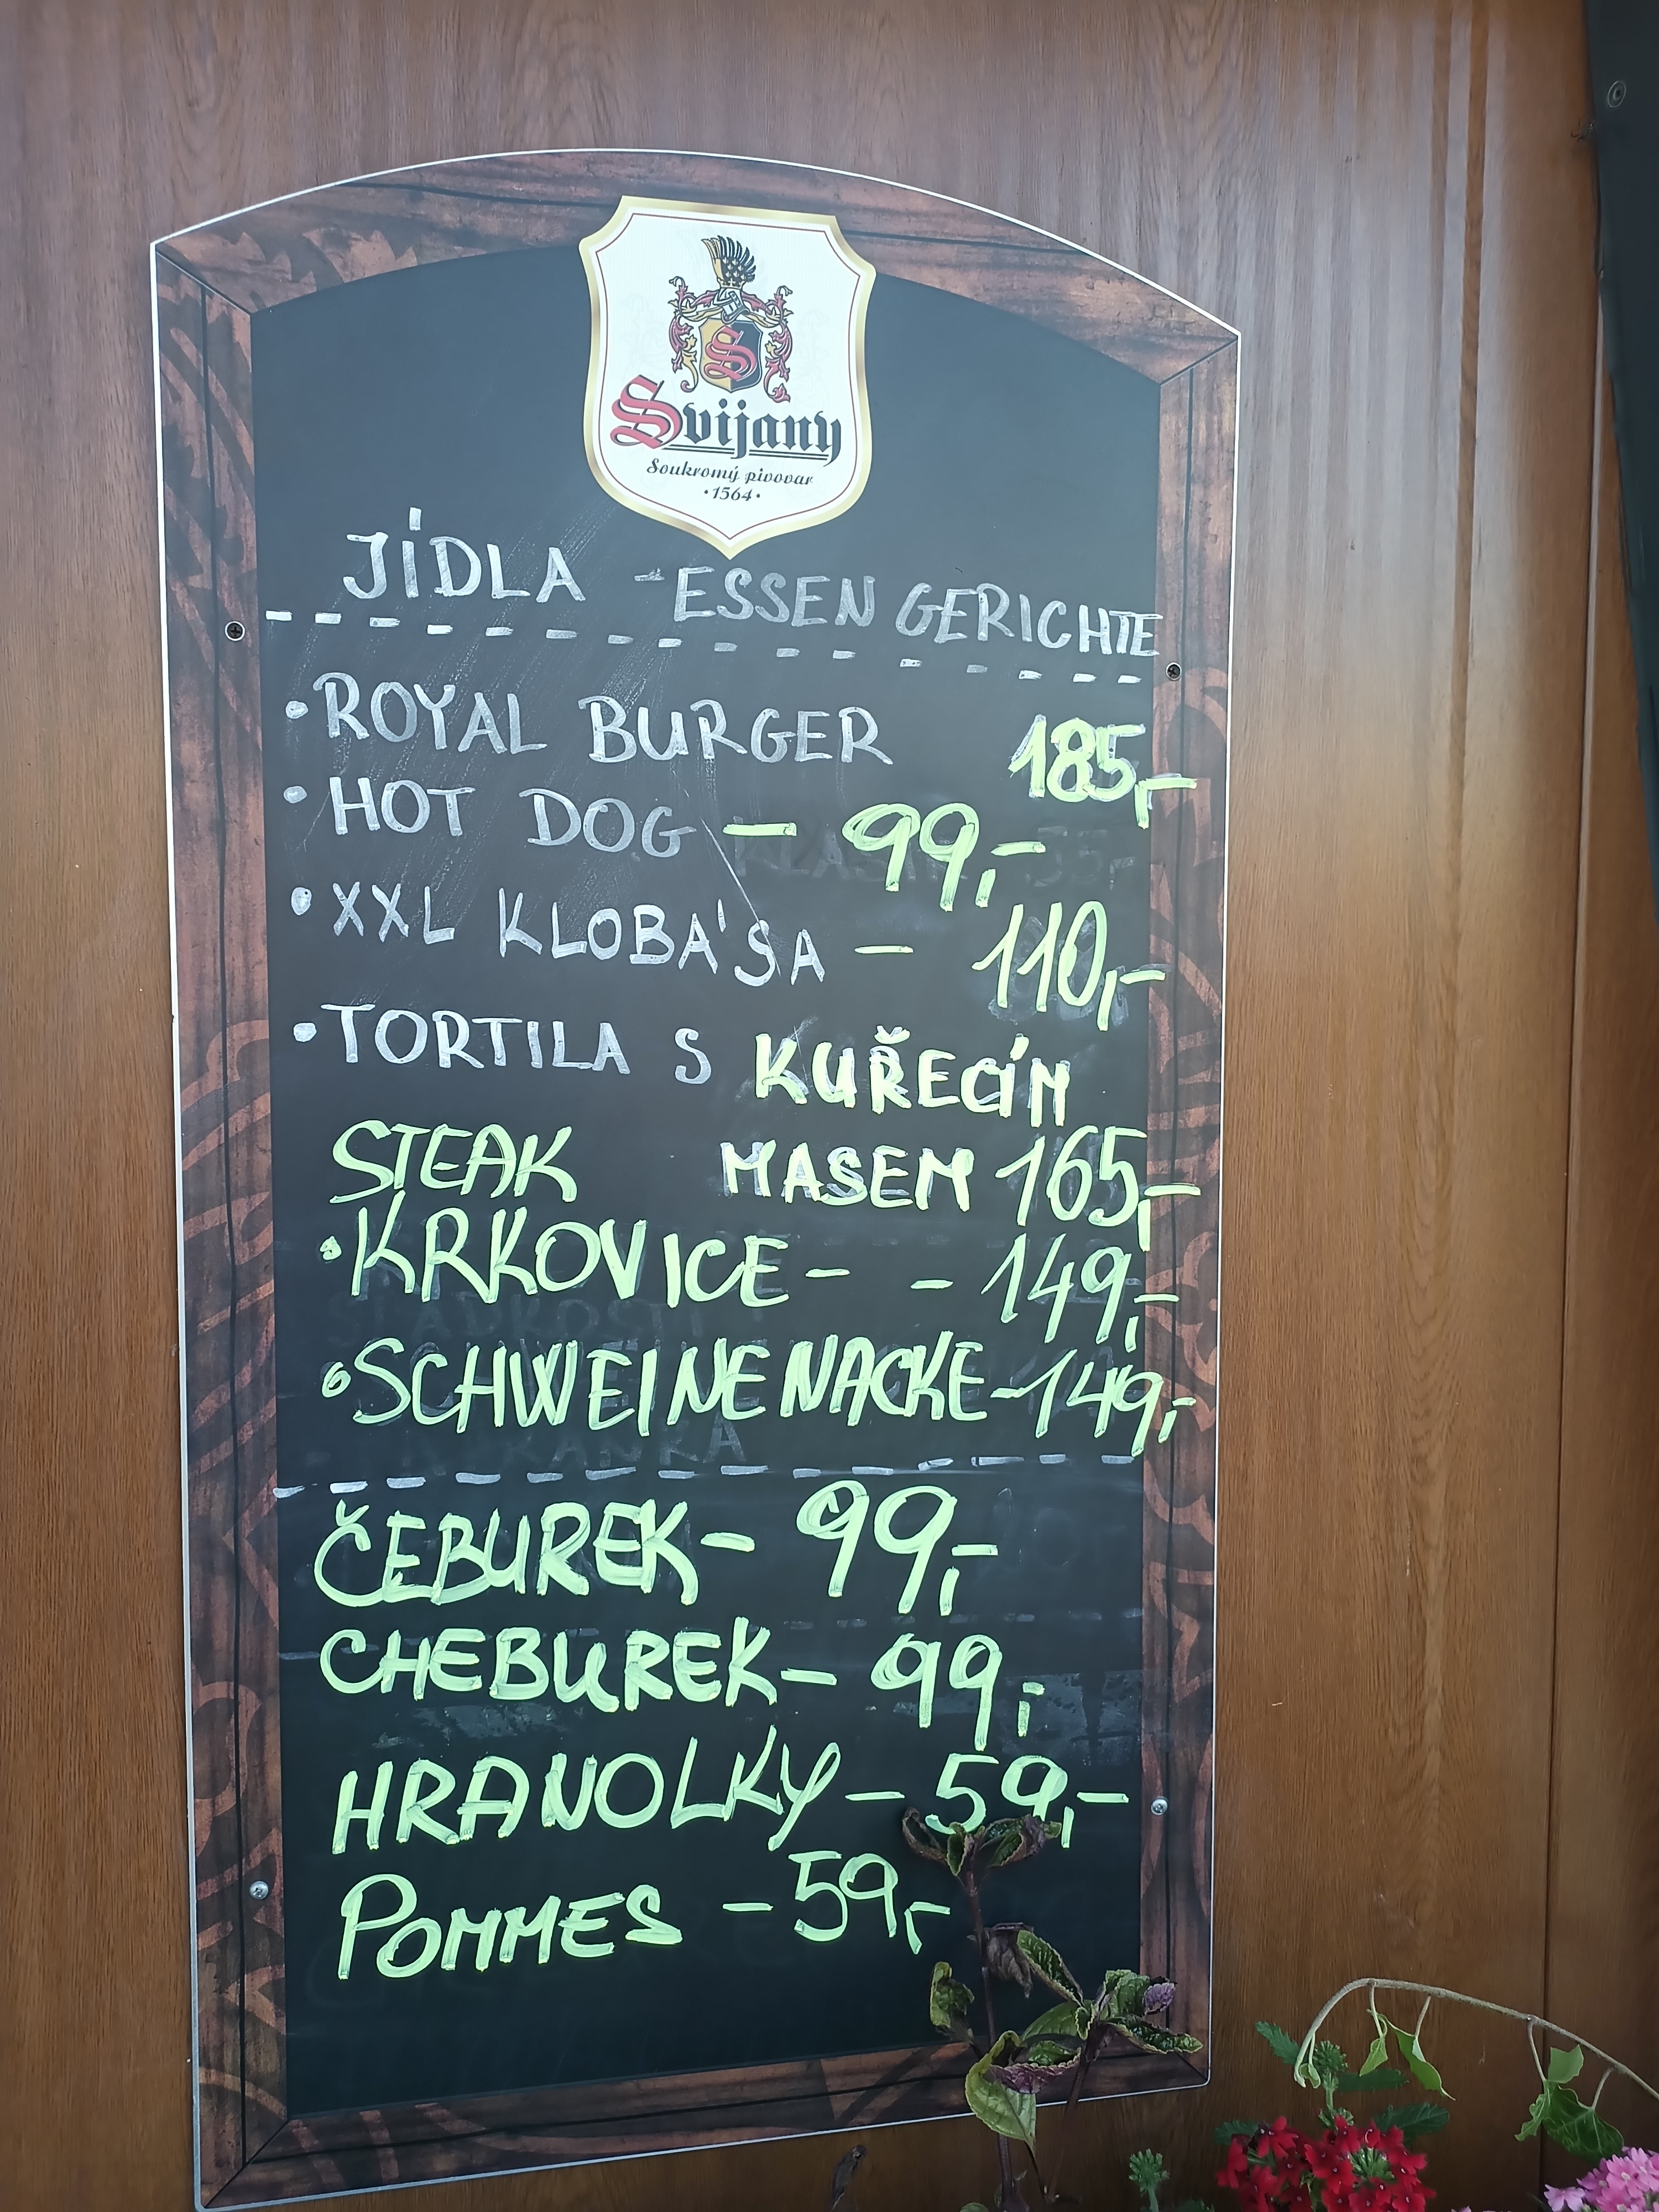 Svijany
Soukromý pivovar
·1564·
JÍDLA - ESSEN GERICHTE
• ROYAL BURGER 185,-
• HOT DOG - 99,-
• XXL KLOBÁSA - 110,-
• TORTILA S KUŘECÍM
MASEM 165,-
STEAK
• KRKOVICE - - 149,-
• SCHWEINENACKE - 149,-
ČEBUREK - 99,-
CHEBUREK - 99,-
HRANOLKY - 59,-
POMMES - 59,-